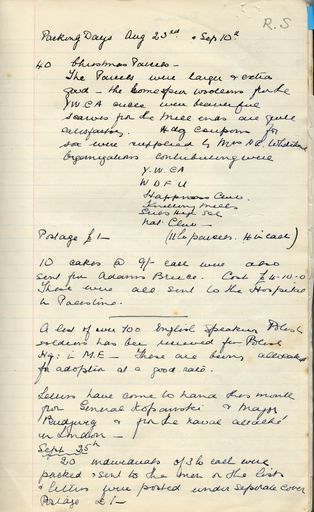 R.S
Packing Days Aug 23rd & Sep 10th
40 Christmas Parcels -
The Parcels were larger & extra
good - the homespun woollens from the
YWCA were beautiful
scarves from the mill ends are quite
satisfactory. Hdq coupons for
sox were supplied by Mrs
Organizations contributing were
Y.W.C.A
W D F U
Happiness Club.
Knitting Mills
Girls High Sch
Nat. Club -
Postage £1-
10 cakes @ 9/- each were also
sent from Adams Bruce. Cost £4-10-0
These were all sent to the Hospital
in Palestine.
A list of over 700 English speaking Polish
soldiers has been received from Polish
Hq: in M.E - These are being allocated
for adoption at a good rate.
Letters have come to hand this month
from General Kopanski & Major
& from the naval attaché
in London -
Sept 25th
20 individuals of 3 lb each were
packed & sent to the men on the lists
& letters were posted under separate cover
Postage £1-